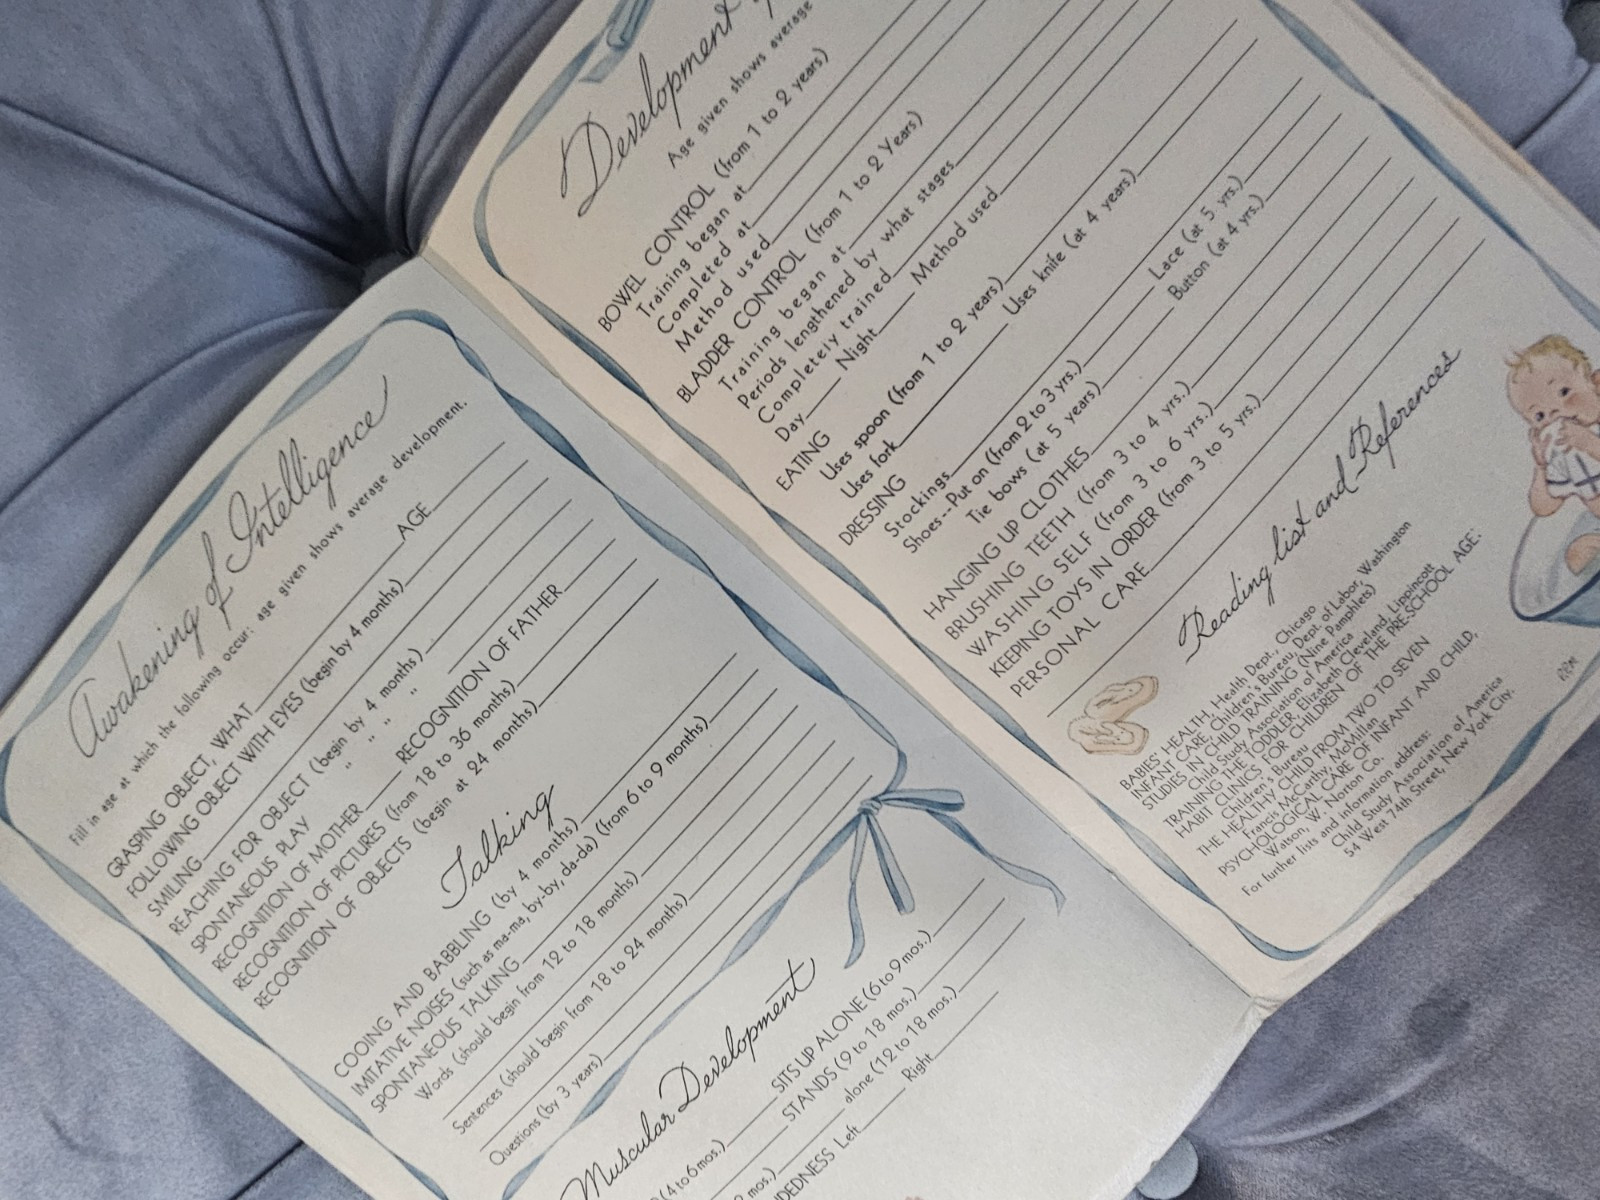 Awakening of Intelligence
Fill in age at which the following occur: age given shows average development.
GRASPING OBJECT, WHAT AGE
FOLLOWING OBJECT WITH EYES (begin by 4 months)
SMILING
REACHING FOR OBJECT (begin by 4 months)
SPONTANEOUS PLAY " " " "
RECOGNITION OF MOTHER RECOGNITION OF FATHER
RECOGNITION OF PICTURES (from 18 to 36 months)
RECOGNITION OF OBJECTS (begin at 24 months)
Talking
COOING AND BABBLING (by 4 months)
IMITATIVE NOISES (such as ma-ma, by-by, da-da) (from 6 to 9 months)
SPONTANEOUS TALKING
Words (should begin from 12 to 18 months)
Sentences (should begin from 18 to 24 months)
Questions (by 3 years)
Muscular Development
(4 to 6 mos.) SITS UP ALONE (6 to 9 mos.)
mos.) STANDS (9 to 18 mos.)
alone (12 to 18 mos.)
DEDNESS Left Right
Development
Age given shows average
BOWEL CONTROL (from 1 to 2 years)
Training began at
Completed at
Method used
BLADDER CONTROL (from 1 to 2 Years)
Training began at
Periods lengthened by what stages
Completely trained
Day Night Method used
EATING
Uses spoon (from 1 to 2 years)
Uses fork Uses knife (at 4 years)
DRESSING
Stockings
Shoes--Put on (from 2 to 3 yrs.) Lace (at 5 yrs.)
Tie bows (at 5 years) Button (at 4 yrs.)
HANGING UP CLOTHES
BRUSHING TEETH (from 3 to 4 yrs.)
WASHING SELF (from 3 to 6 yrs.)
KEEPING TOYS IN ORDER (from 3 to 5 yrs.)
PERSONAL CARE
Reading list and References
BABIES HEALTH, Health Dept., Chicago
INFANT CARE, Children's Bureau, Dept. of Labor, Washington
STUDIES IN CHILD TRAINING (Nine Pamphlets)
Child Study Association of America
TRAINING THE TODDLER, Elizabeth Cleveland, Lippincott
HABIT CLINICS FOR CHILDREN OF THE PRE-SCHOOL AGE:
Children's Bureau
THE HEALTHY CHILD FROM TWO TO SEVEN
Francis McCarthy, McMillan
PSYCHOLOGICAL CARE OF INFANT AND CHILD,
Watson, W. W. Norton Co.
For further lists and information address:
Child Study Association of America
54 West 74th Street, New York City.